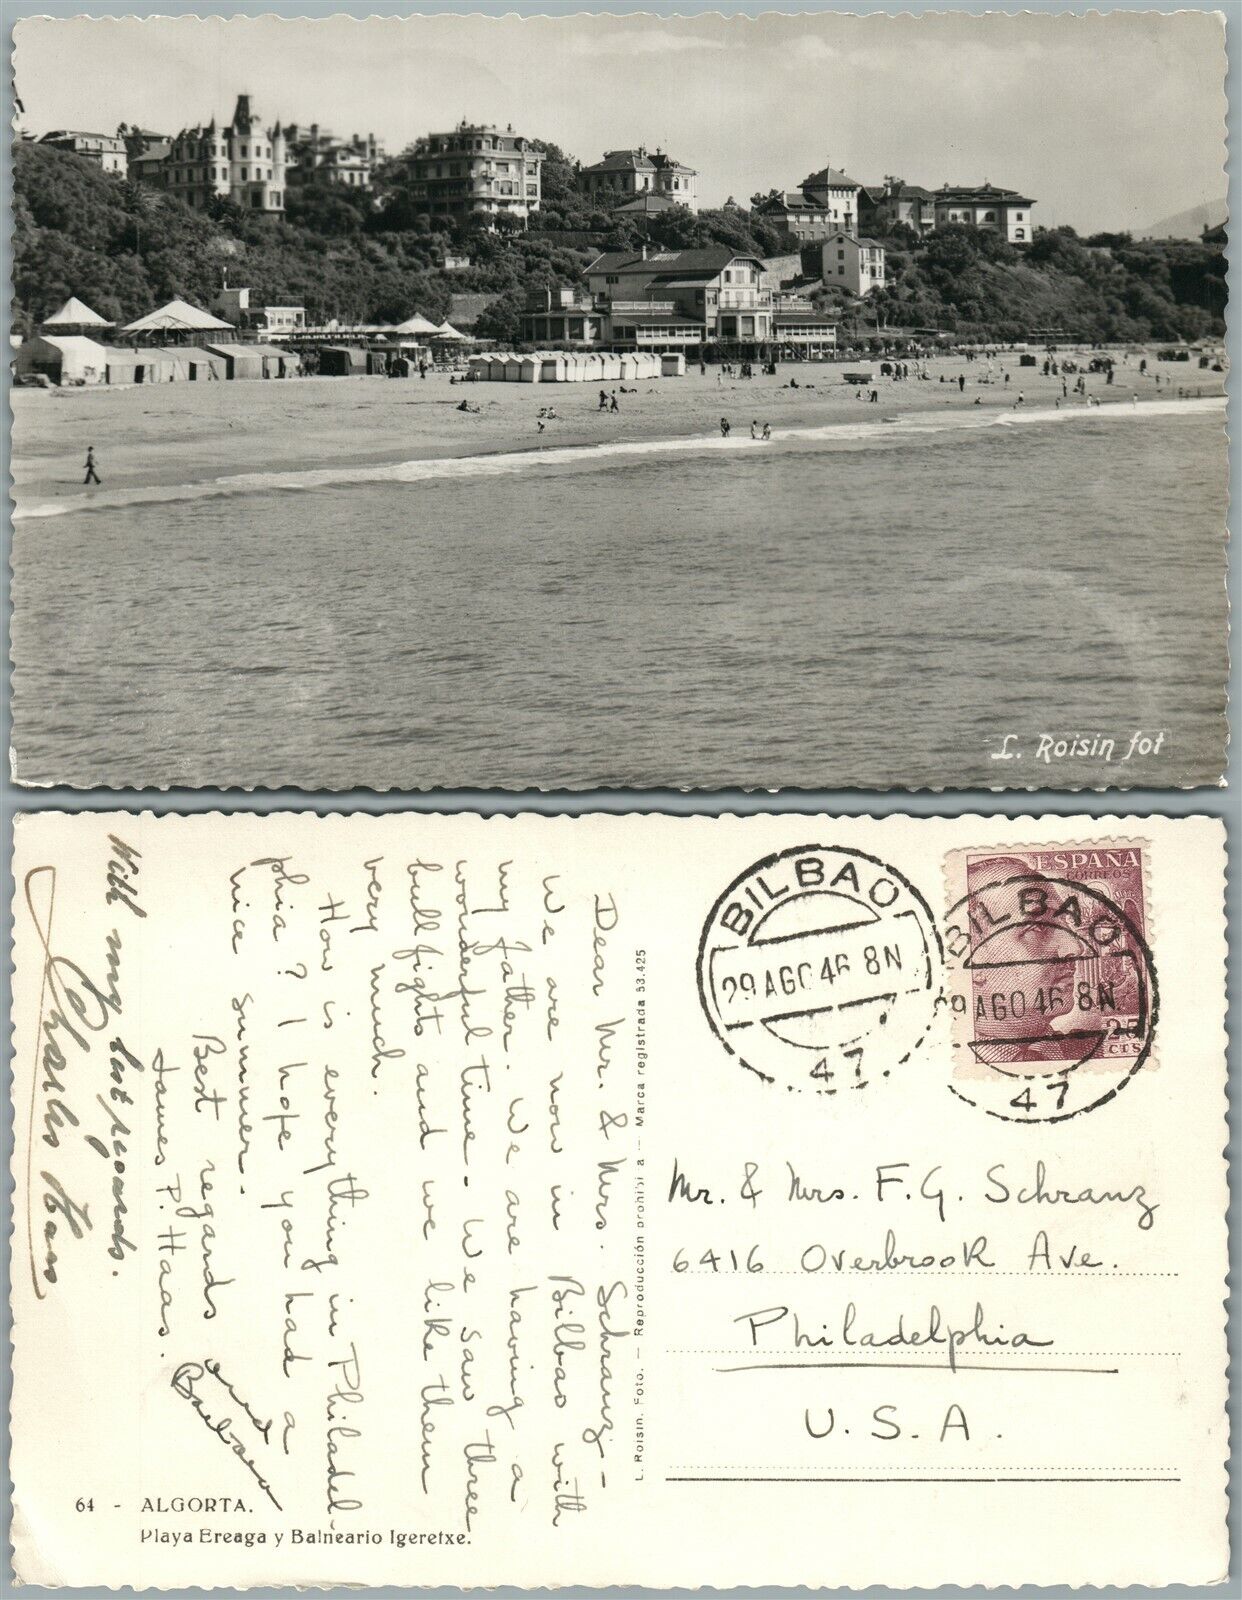 L. Roisin fot
With my best regards.
Charles Haas
Dear Mr. & Mrs. Schranz -
We are now in Bilbao with
my father. We are having a
wonderful time - We saw three
bull fights and we like them
very much.
How is everything in Philadel-
phia? I hope you had a
nice summer.
Best regards and
James P. Haas.
64 - ALGORTA.
Playa Ereaga y Balneario Igeretxe.
L. Roisin. Foto. — Reproducción prohibida — Marca registrada 53.425
BILBAO
29 AGO 46 8N
47
ESPAÑA
CORREOS
25
CTS
BILBAO
29 AGO 46 8N
47
Mr. & Mrs. F. G. Schranz
6416 Overbrook Ave.
Philadelphia
U. S. A.